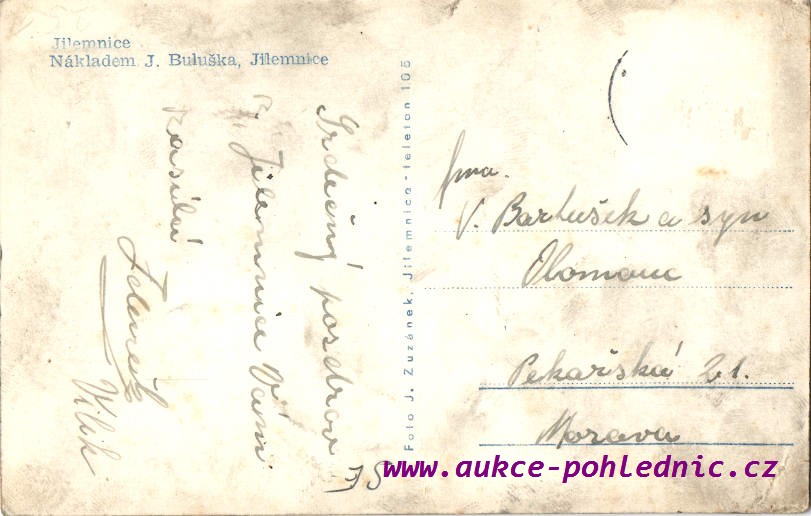 Jilemnice
Nákladem J. Buluška, Jilemnice
Srdečný pozdrav
z Jilemnice Vám
zasílá
Vilik
Foto J. Zuzánek, Jilemnice - telefon 105
fma.
V. Bartušek a syn
Olomouc
Pekařská 21.
Morava
www.aukce-pohlednic.cz